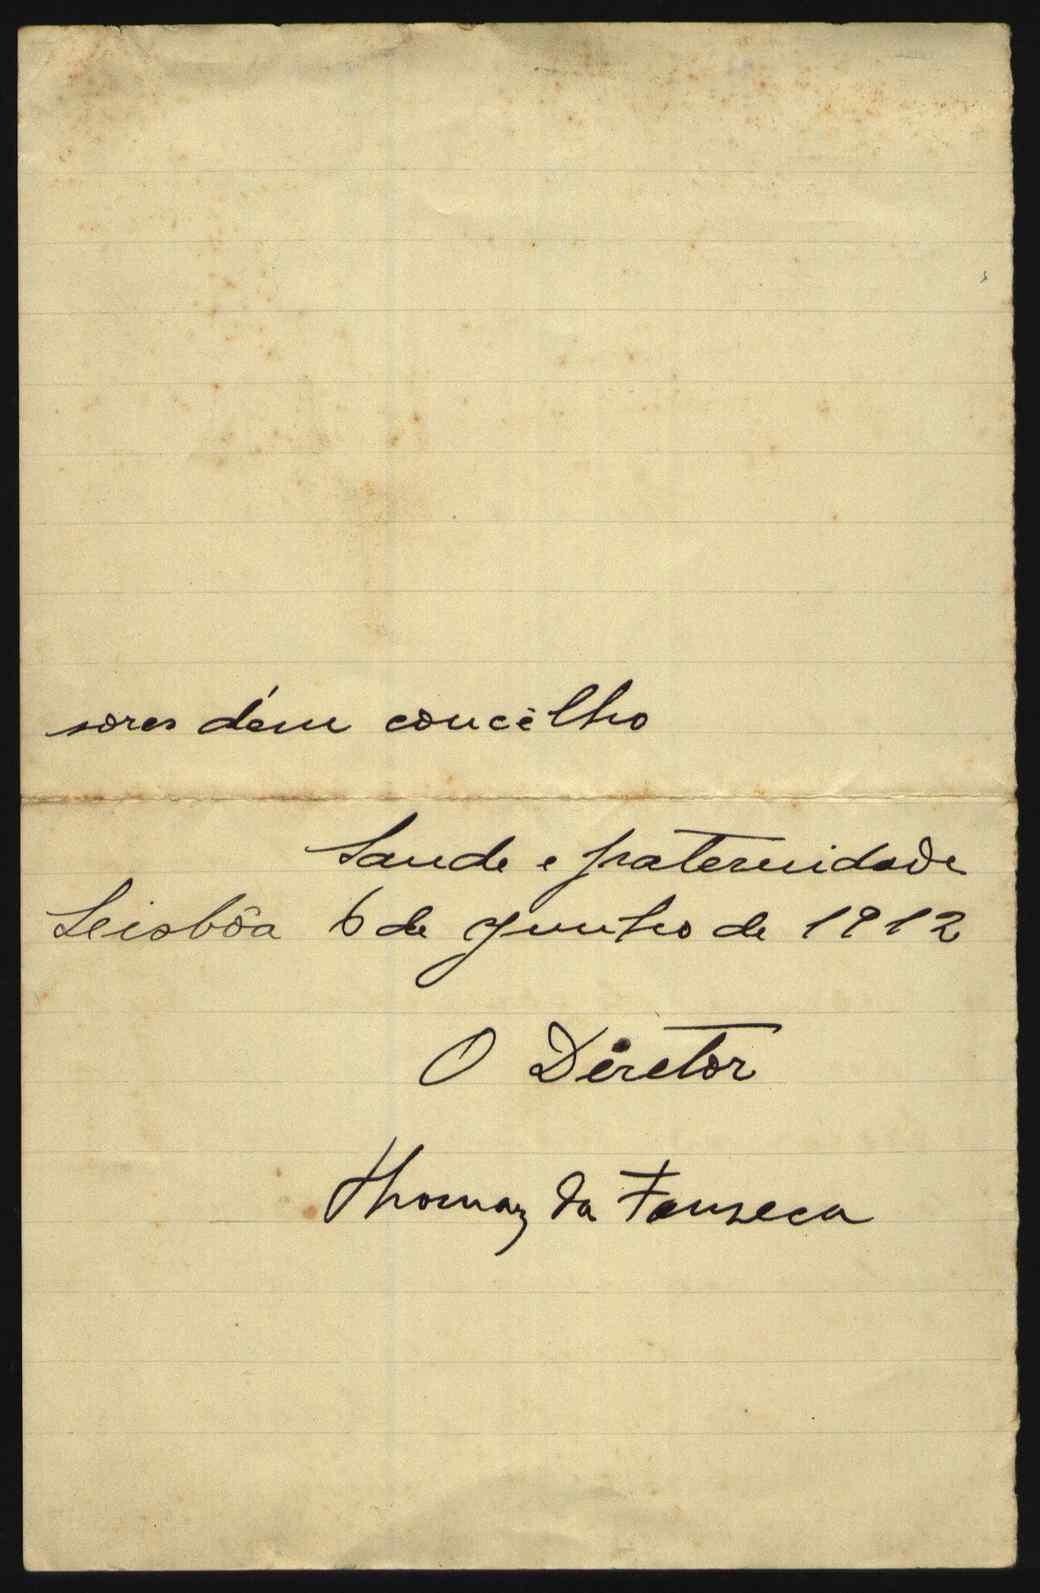 sores d'em concêlho
Saude e fraternidade
Leisbôa 6 de Junho de 1912
O Diretor
Thomaz da Fonseca